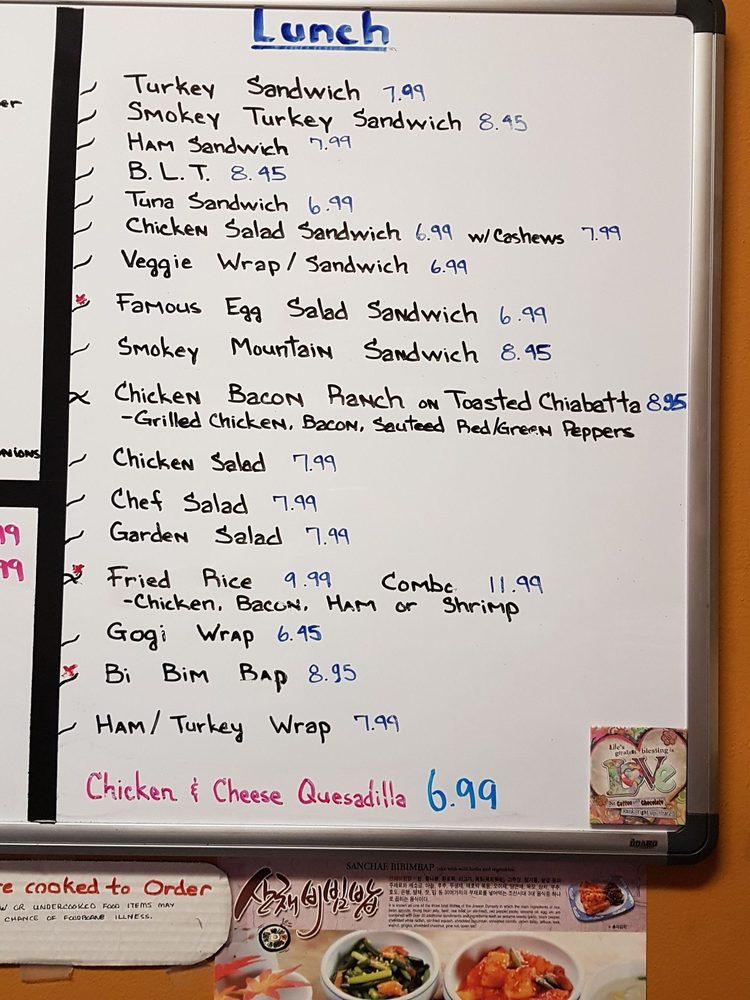 Lunch
Turkey Sandwich 7.99
Smokey Turkey Sandwich 8.45
HAM Sandwich 7.99
B.L.T. 8.45
Tuna Sandwich 6.99
Chicken Salad Sandwich 6.99 w/Cashews 7.99
Veggie Wrap/Sandwich 6.99
Famous Egg Salad Sandwich 6.99
Smokey Mountain Sandwich 8.45
Chicken Bacon Ranch on Toasted Chiabatta 8.95
-Grilled Chicken, Bacon, Sauteed Red/Green Peppers
Chicken Salad 7.99
Chef Salad 7.99
Garden Salad 7.99
Fried Rice 9.99 Combo 11.99
-Chicken, Bacon, Ham or Shrimp
Gogi Wrap 6.45
Bi Bim Bap 8.95
Ham/Turkey Wrap 7.99
Chicken & Cheese Quesadilla 6.99
er
NIONS
99
99
Life's
greatest blessing is
LOVE
But Coffee and Chocolate
QUARD
re cooked to Order
W OR UNDERCOOKED FOOD ITEMS MAY
CHANCE OF FOODBORNE ILLNESS.
SANCHAE BIBIMBAP
산채비빔밥